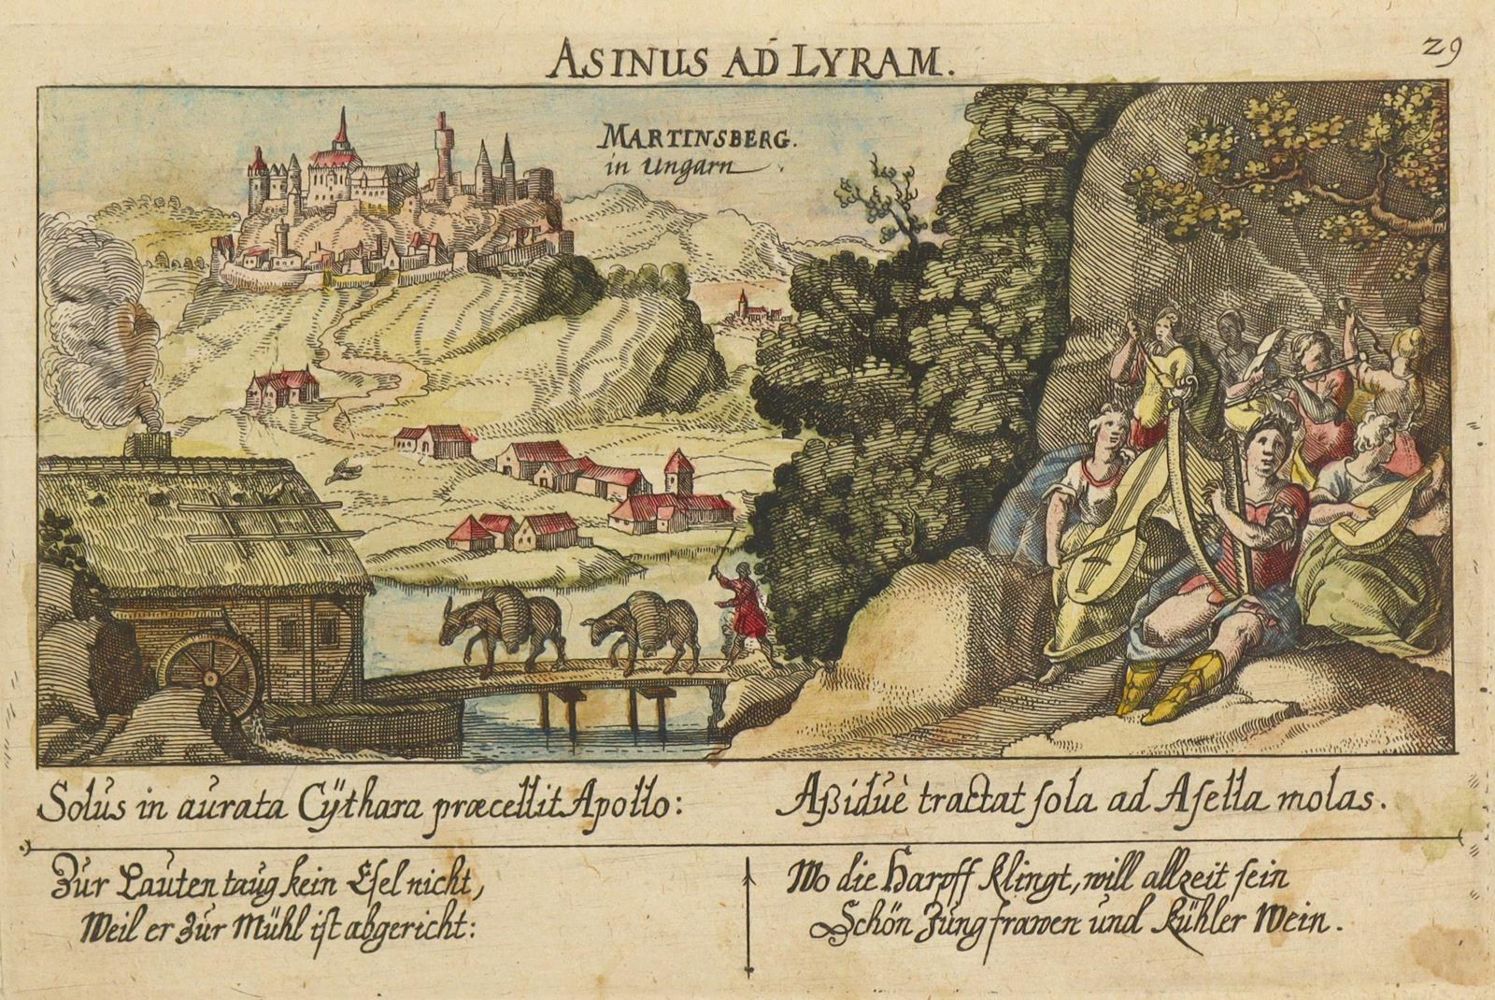 ASINUS AD LYRAM.
29
MARTINSBERG.
in Ungarn
Solus in aurata Cÿthara præcellit Apollo:
Aßiduè tractat ſola ad Aſella molas.
Zur Lauten taug kein Eſel nicht,
Weil er zur Mühl iſt abgericht:
Wo die Harpff klingt, will allzeit ſein
Schön Jungfrawen und kühler Wein.